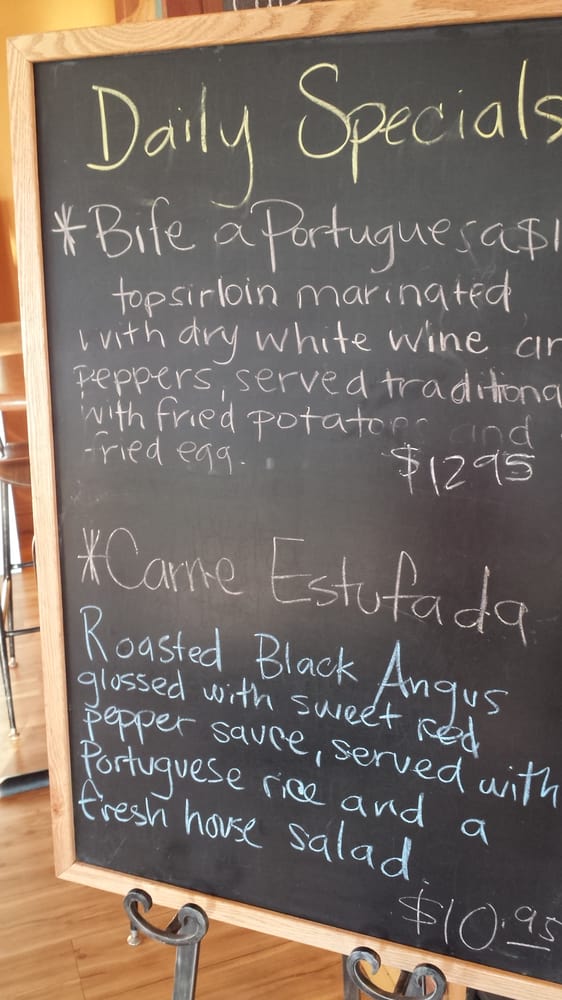 Daily Specials
*Bife a Portuguesa $1
topsirloin marinated
with dry white wine an
peppers, served traditiona
with fried potatoes and
fried egg.
$1295
*Carne Estufada
Roasted Black Angus
glossed with sweet red
pepper sauce, served with
Portuguese rice and a
fresh house salad
$10.95